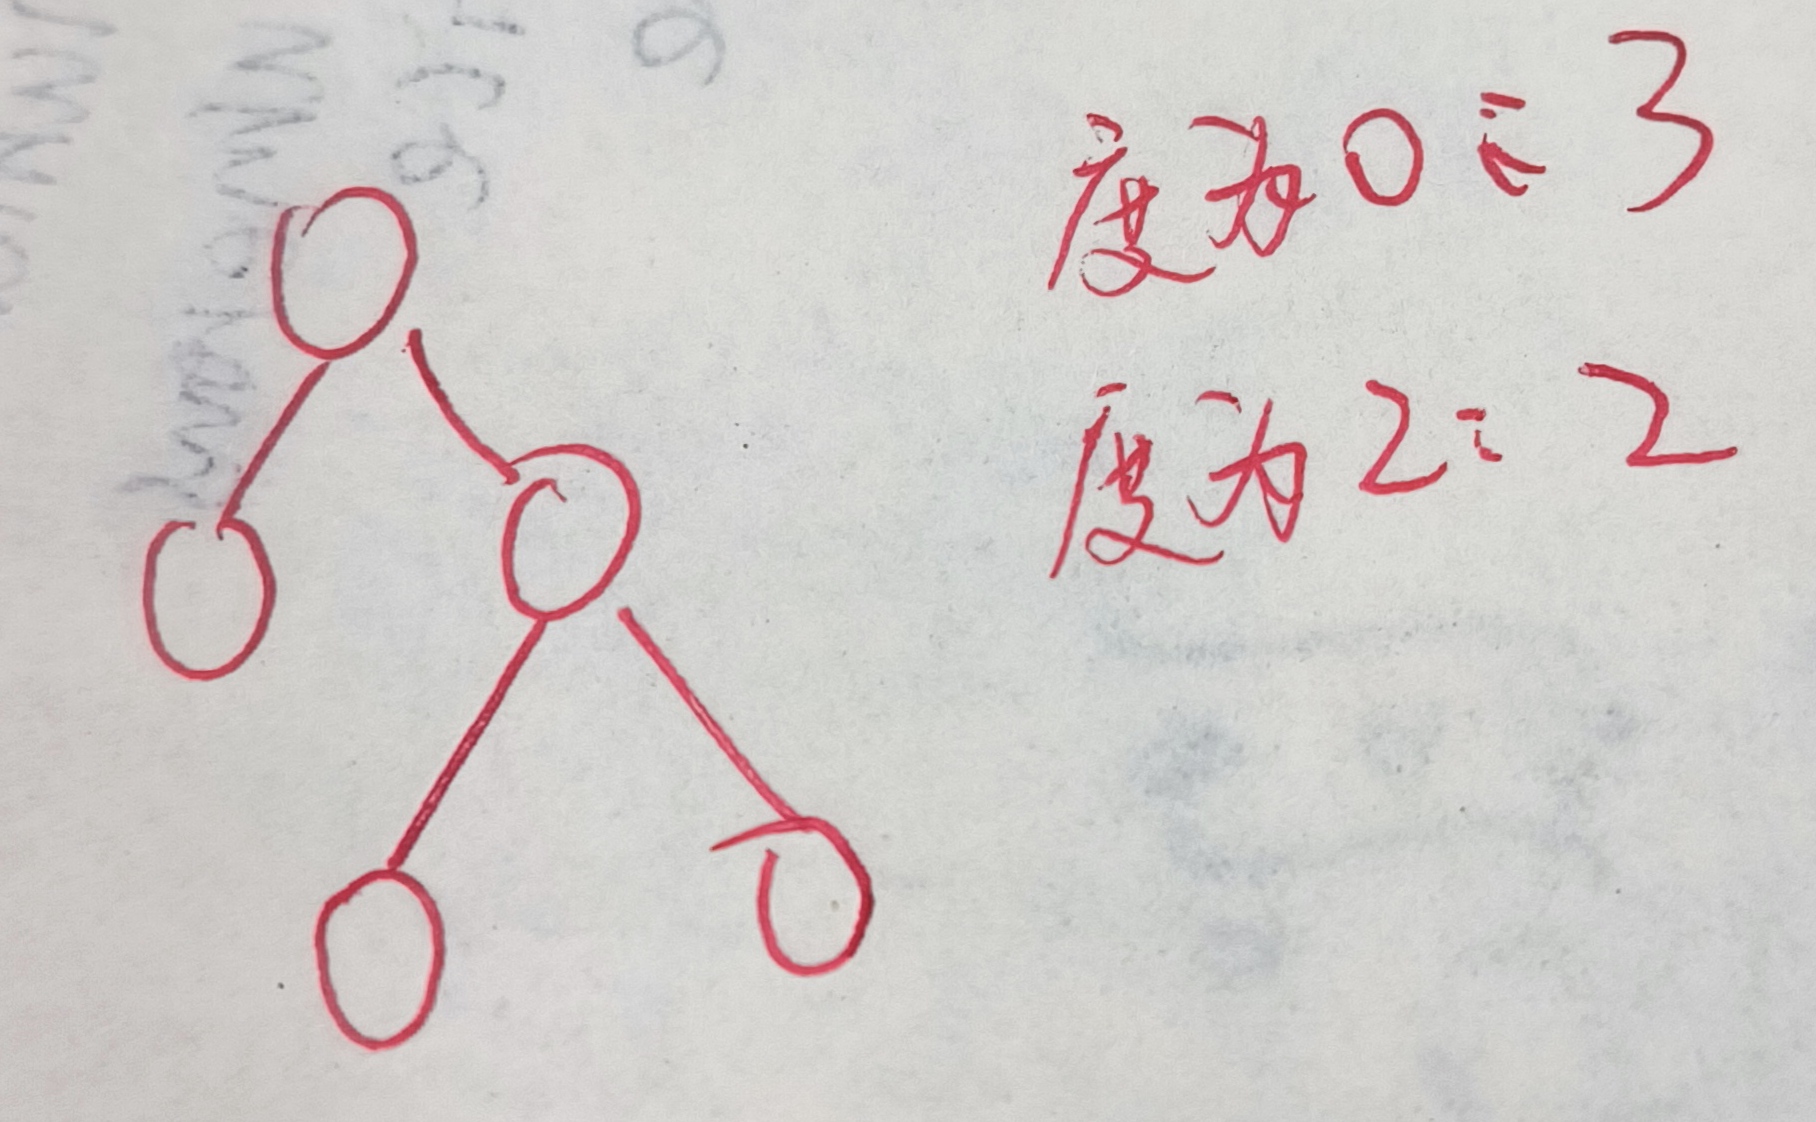 度为0:3
度为2:2